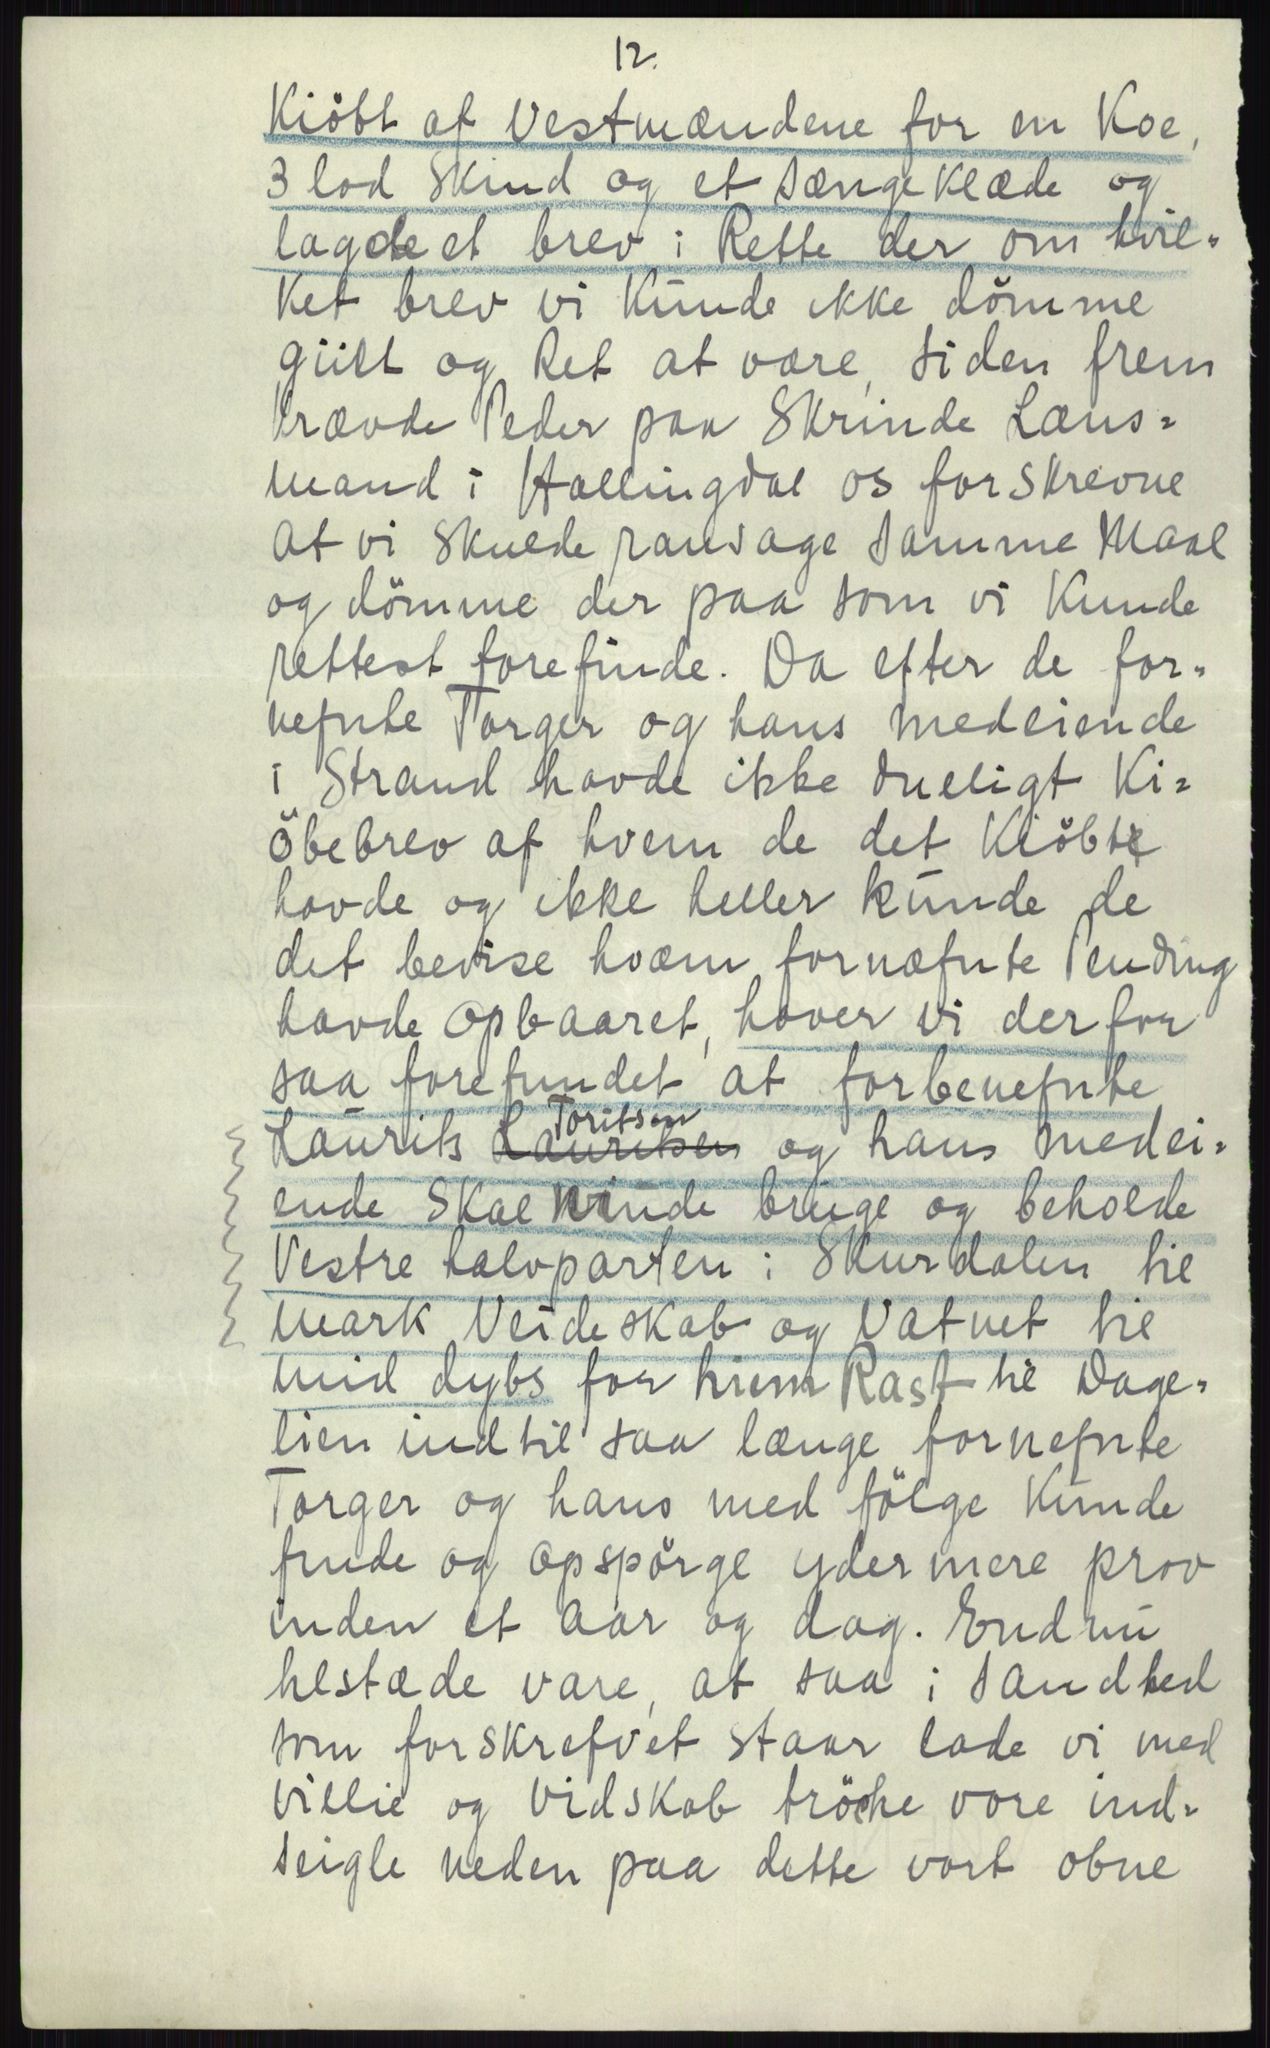 12.
Kiöbt af Vestmændene for en Koe,
3 lod Skind og et sængeklæde og
lagde et brev i Rette der om hvil=
ket brev vi Kunde ikke dömme
giilt og Ret at være, siden frem
krævde Peder paa Skrinde Læns=
mand i Hallingdal os forskrevne
at vi Skulde ransage samme Maal
og dömme der paa som vi Kunde
rettest forefinde. Da efter de for=
nefnte Torger og hans medeiende
i Strand havde ikke dueligt Ki=
öbebrev af hvem de det Kiöbte
havde og ikke heller kunde de
det bevise hvæm fornæfnte Pending
havde Opbaaret, haver vi derfor
saa forefundet at forbenefnte
Laurits Lauritsen Toritsen og hans medei=
ende Skal niude bruge og beholde
Vestre halvparten i Skurdalen til
mark Veideskab og Vatnet til
mid dybs for hiem Rast til Dage=
lien indtil saa længe fornefnte
Torger og hans med fölge Kunde
finde og Opspörge ydermere prov
inden et Aar og dag. Endnu
tilstæde vare, at saa i sandhed
som forskrefvet staar lade vi med
Villie og Vidskab tröche vore ind=
seigle neden paa dette vort obne